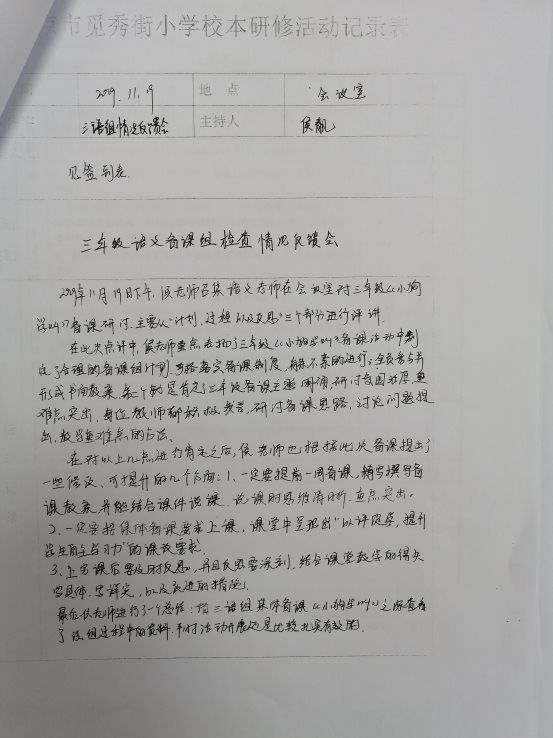 市觅秀街小学校本研修活动记录表
2019.11.19 地 点 会议室
三语组情况反馈会 主持人 侯靓
见签到表.
三年级语文备课组检查情况反馈会
2019年11月19日下午,侯老师召集语文老师在会议室对三年级《小狗
学叫》备课研讨.主要从"计划、过程以及反思"三个部分进行评讲.
在此次点评中,侯老师重点表扬了三年级《小狗学叫》备课活动中制
定了合理的备课组计划.严格落实备课制度,有条不紊的进行;全员参与并
形成书面教案.每个 都是肯定了三年级备课主题明确,研讨氛围浓厚,重
难点突出.每位教师都积极发言,研讨备课思路,讨论问题提
出,教学重难点的方法、
在对以上几点进行肯定之后,侯老师也根据此次备课提出了
一些修改、可提升的几个方面:1、一定要提前一周备课,精写撰写备
课教案,并能结合课件说课.说课时思维清晰.重点突出.
2.一定要按集体备课要求上课,课堂中呈现出"以评促学,提升
学生自主学习力"的课改要求.
3、上完课后要及时反思,并且反思要深刻,结合课堂教学的得失
写具体.写详实,以及改进的措施.
最后侯老师进行了一个总结:指三语组集体备课《小狗学叫》之后查看
了该组过程中的资料.平时活动开展还是比较扎实有效的.